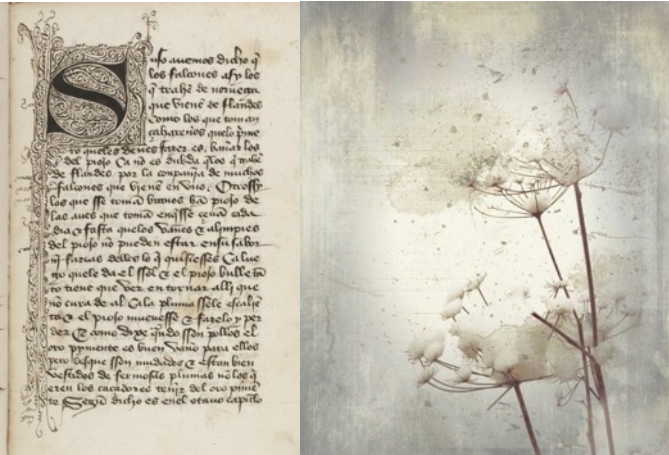 Suso auemos dicho q̃
los falcones asy los
q̃ trahẽ de noruega
que vienẽ de flandes
Como los que toman
çahareños quelo prime
ro queles deues fazer es. bañar los
del piojo Ca nõ es dubda q̃los q̃ trahẽ
de flandes por la conpañia de muchos
falcones que vienẽ en vno. Otrossy
los que sse tomã brauos hã piojo de
las aues que tomã
dia & fasta quelos vañes & alinpies
del piojo nõ pueden estar ensu sabor
nj̃ farias dellos lo q̃ quisiesses Ca lue
go quele da el ssol & el piojo bulle
to tiene que ver en tornar alli que
nõ cura de al Ca la pluma ssele escalie
ta & el piojo mueuesse & fazelo y per
der & como dixe q̃ndo sson pollos el
oro pymente es buen vaño para ellos
pero desque sson mudados & estan bien
vestidos de fermosas plumas nõ los q̃
eren los caçadores teñir del oro pimẽ
te Segũ dicho es enel otauo capitlo